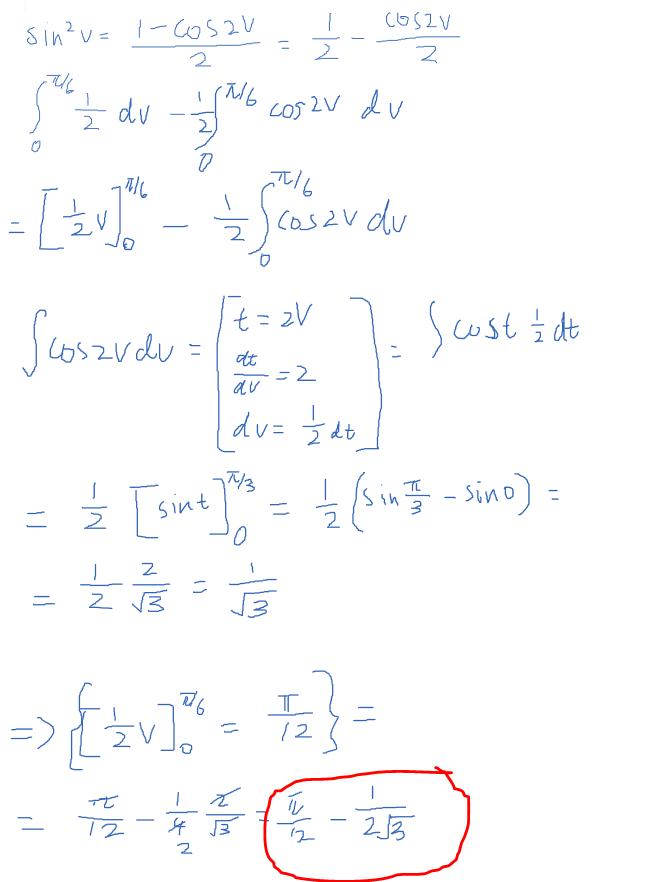 sin²v = (1 - cos2v)/2 = 1/2 - cos2v/2
∫₀^(π/6) 1/2 dv - 1/2 ∫₀^(π/6) cos2v dv
= [1/2 v]₀^(π/6) - 1/2 ∫₀^(π/6) cos2v dv
∫ cos2v dv = [t = 2v
dt/dv = 2
dv = 1/2 dt] = ∫ cos t 1/2 dt
= 1/2 [sin t]₀^(π/3) = 1/2 (sin π/3 - sin 0) =
= 1/2 2/√3 = 1/√3
=> {[1/2 v]₀^(π/6) = π/12} =
= π/12 - 1/4 2/√3 = π/12 - 1/(2√3)